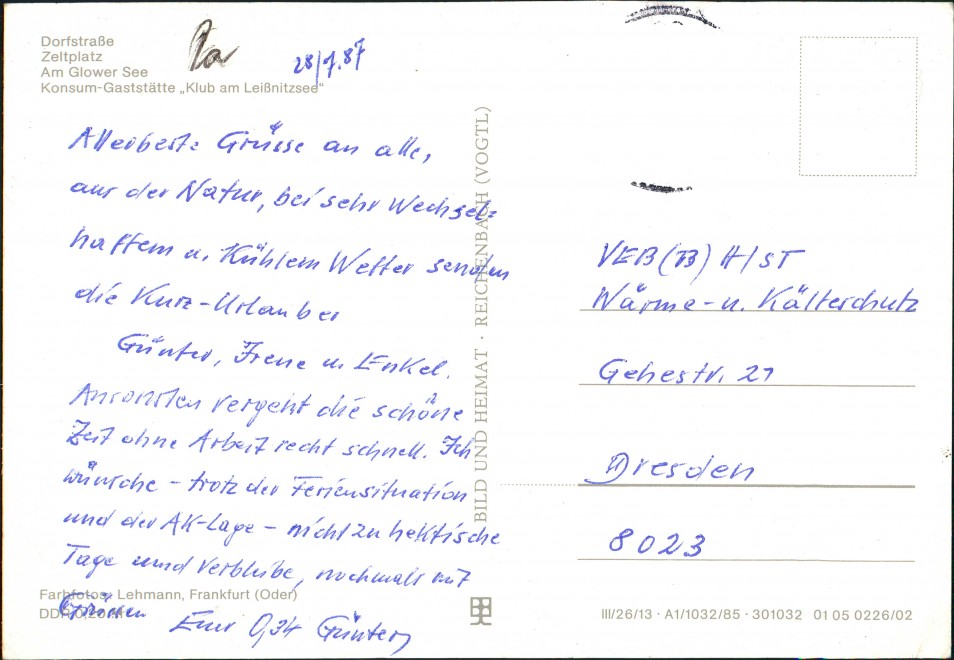 Dorfstraße
Zeltplatz
Am Glower See
Konsum-Gaststätte „Klub am Leißnitzsee"
28/7.87
Allerbeste Grüsse an alle,
aus der Natur, bei sehr Wechsel=
haftem u. Kühlem Wetter senden
die Kurz-Urlauber
Günter, Irene u. Enkel.
Ansonsten vergeht die schöne
Zeit ohne Arbeit recht schnell. Ich
wünsche - trotz der Feriensituation
und der AK-Lage - nicht zu hektische
Tage und verbleibe, nochmals mit
Grüssen
Euer Günter
Farbfotos: Lehmann, Frankfurt (Oder)
DDR
BILD UND HEIMAT · REICHENBACH (VOGTL)
VEB (B) H/ST
Wärme- u. Kälteschutz
Gehestr. 21
Dresden
8023
III/26/13 · A1/1032/85 · 301032 01 05 0226/02